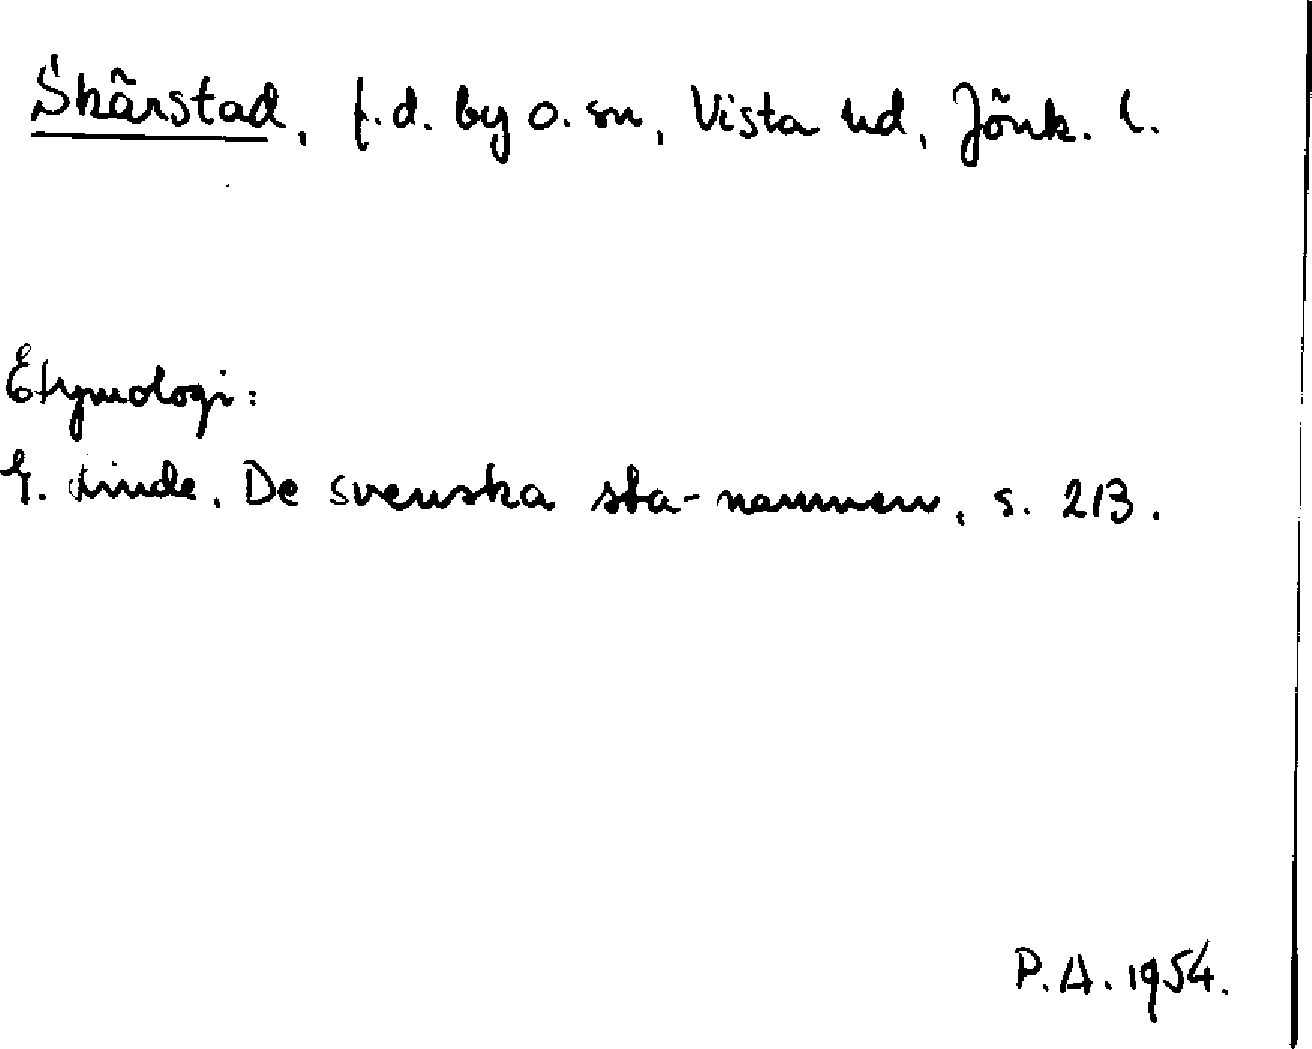 Skärstad, f.d. by o. sn, Vista hd, Jönk. l.
Etymologi:
G. Linde, De svenska sta-namnen, s. 213.
P.A. 1954.